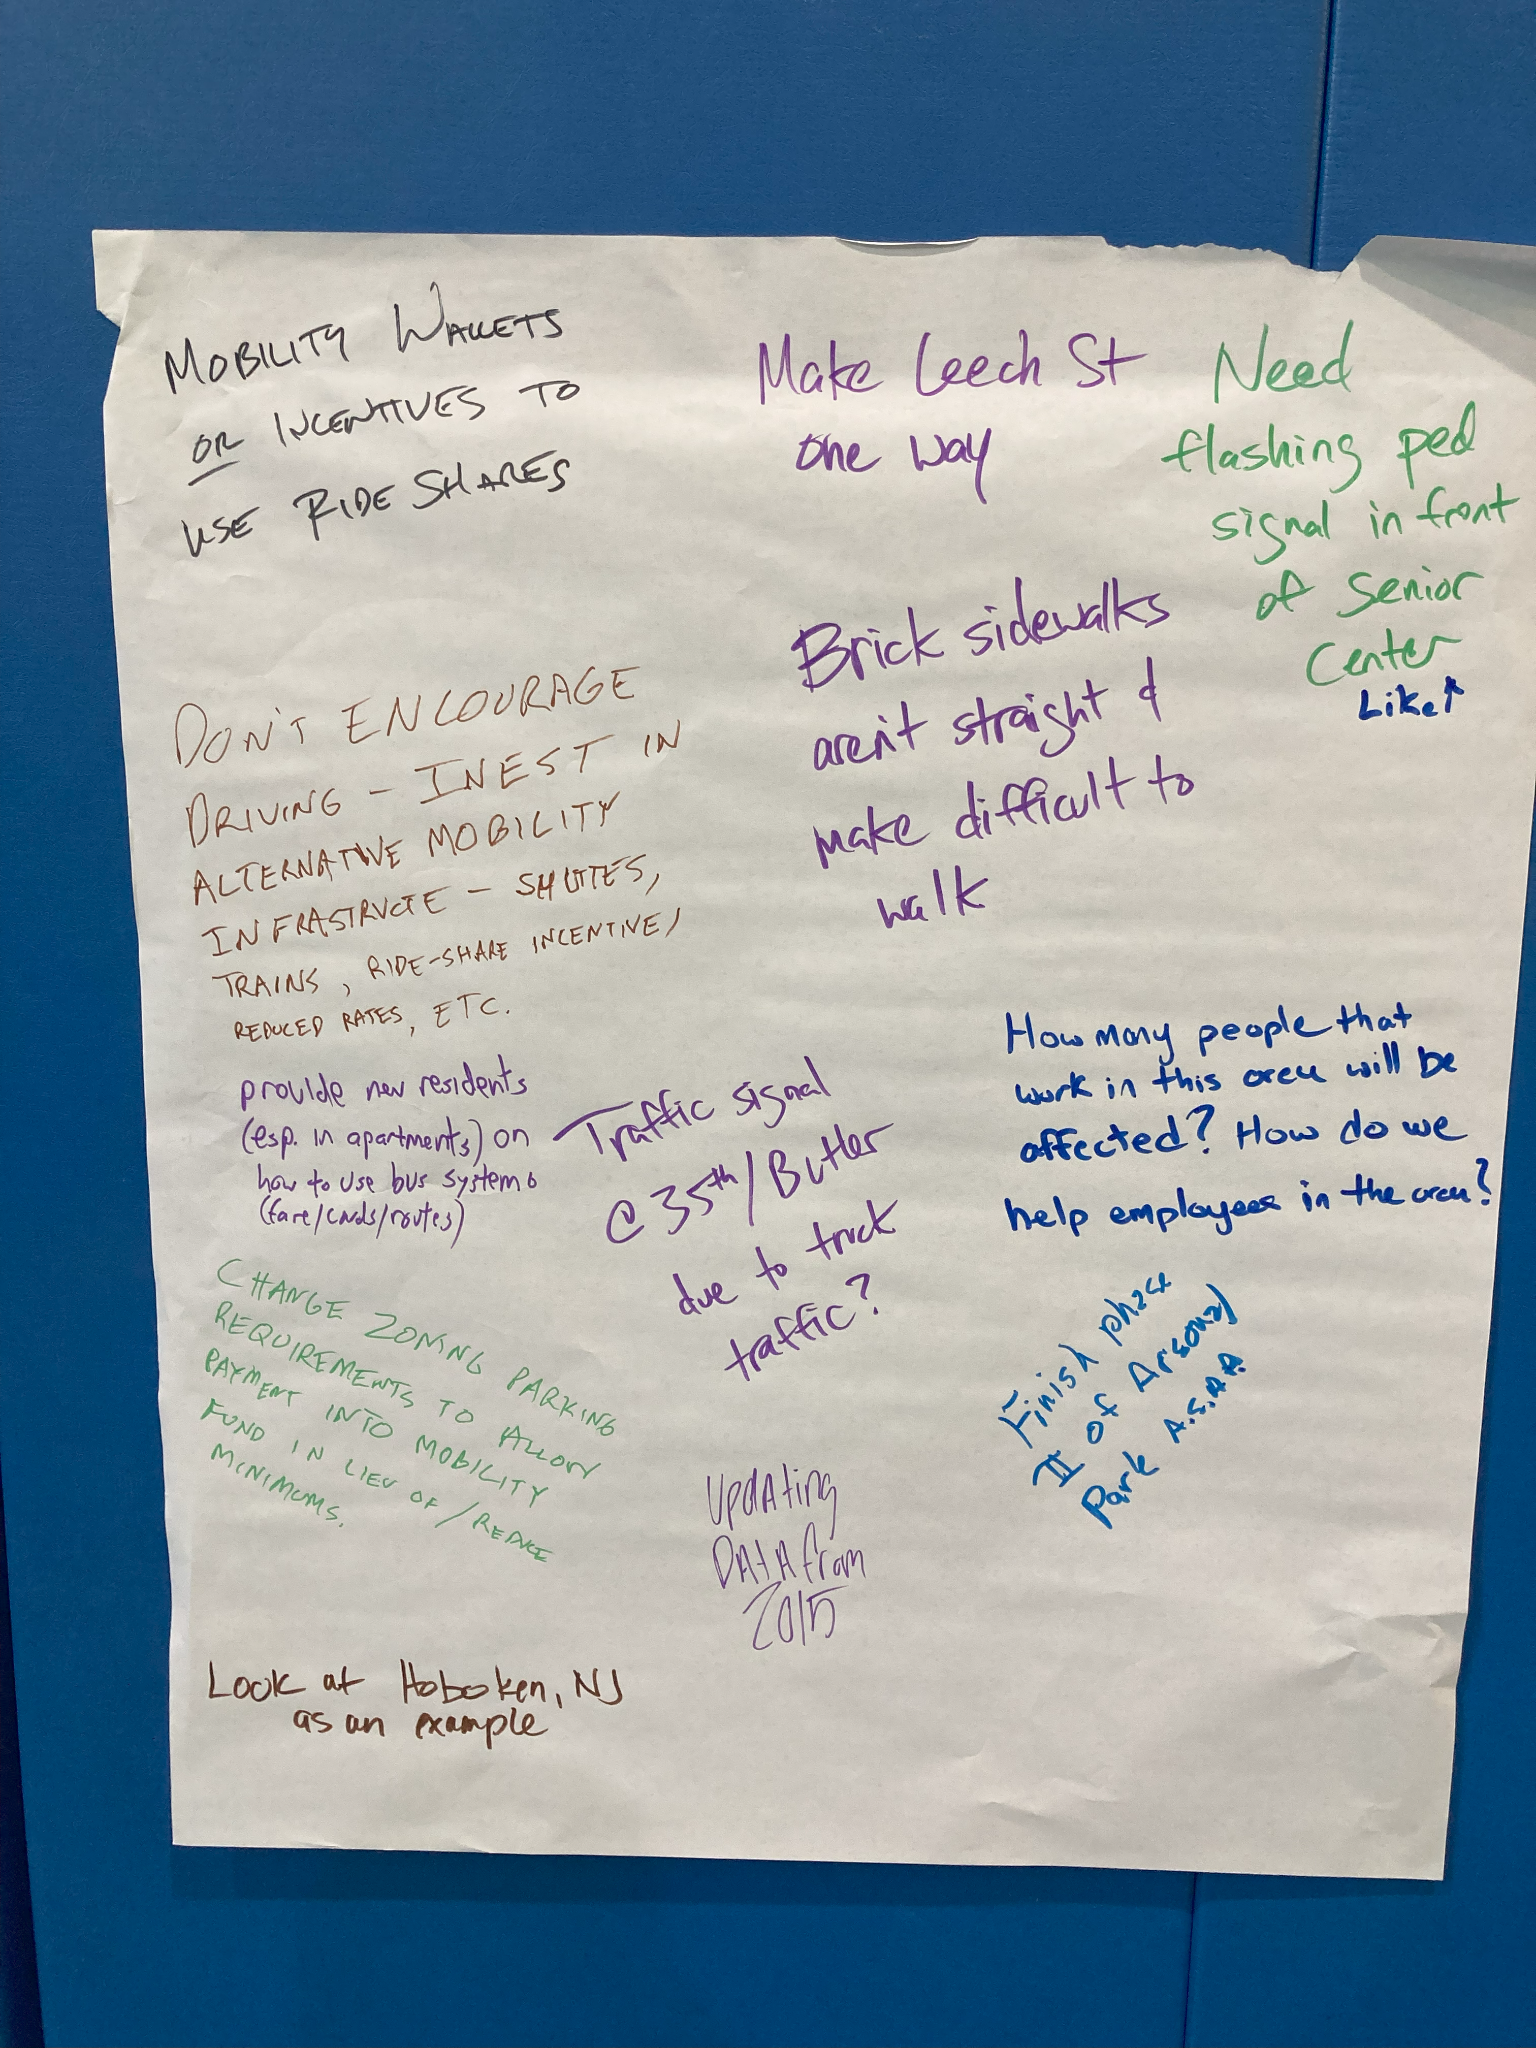 MOBILITY WALLETS
OR INCENTIVES TO
USE RIDE SHARES
Make Leech St
one way
Need
flashing ped
signal in front
of Senior
Center
Like↑
Brick sidewalks
aren't straight &
make difficult to
walk
DON'T ENCOURAGE
DRIVING - INEST IN
ALTERNATIVE MOBILITY
INFRASTRUCTE - SHUTTES,
TRAINS, RIDE-SHARE INCENTIVE,
REDUCED RATES, ETC.
provide new residents
(esp. in apartments) on
how to use bus system
(fare/cards/routes)
Traffic signal
@ 35th/Butler
due to truck
traffic?
How many people that
work in this area will be
affected? How do we
help employees in the area?
CHANGE ZONING PARKING
REQUIREMENTS TO ALLOW
PAYMENT INTO MOBILITY
FUND IN LIEU OF/REDUCE
MINIMUMS.
Finish phase
II of Arsenal
Park A.S.A.P.
UpdAting
DATA from
2015
Look at Hoboken, NJ
as an example